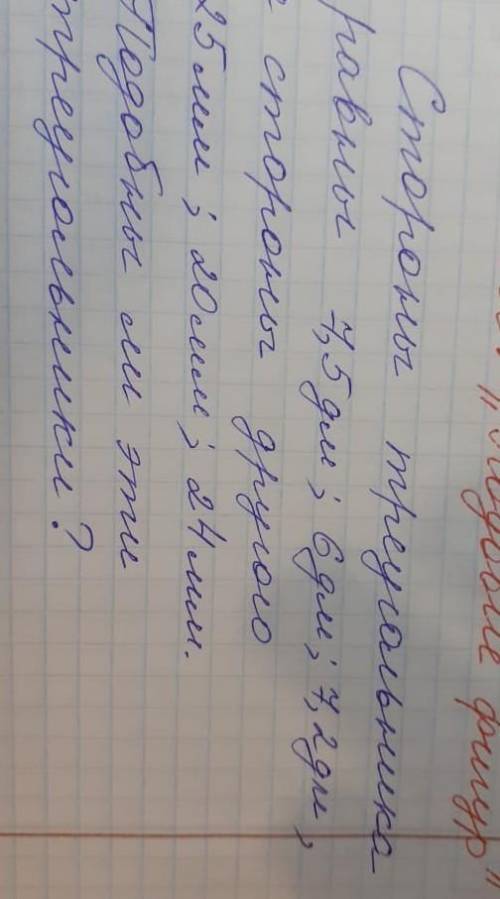 фигур"
Стороны треугольника
равны 7,5дм; 6дм; 7,2дм,
стороны другого
25мм; 20мм; 24мм.
Подобны ли эти
треугольники?